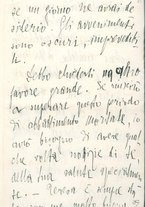 se un giorno ne avrai de-
siderio. Gli avvenimenti
sono oscuri, imprevedibi-
li.
Debbo chiederti un altro
favore grande. Se riuscirò
a superare questo periodo
di abbattimento morale, io
avrò bisogno di avere qual-
che volta notizie di te,
della tua salute specialmen-
te.